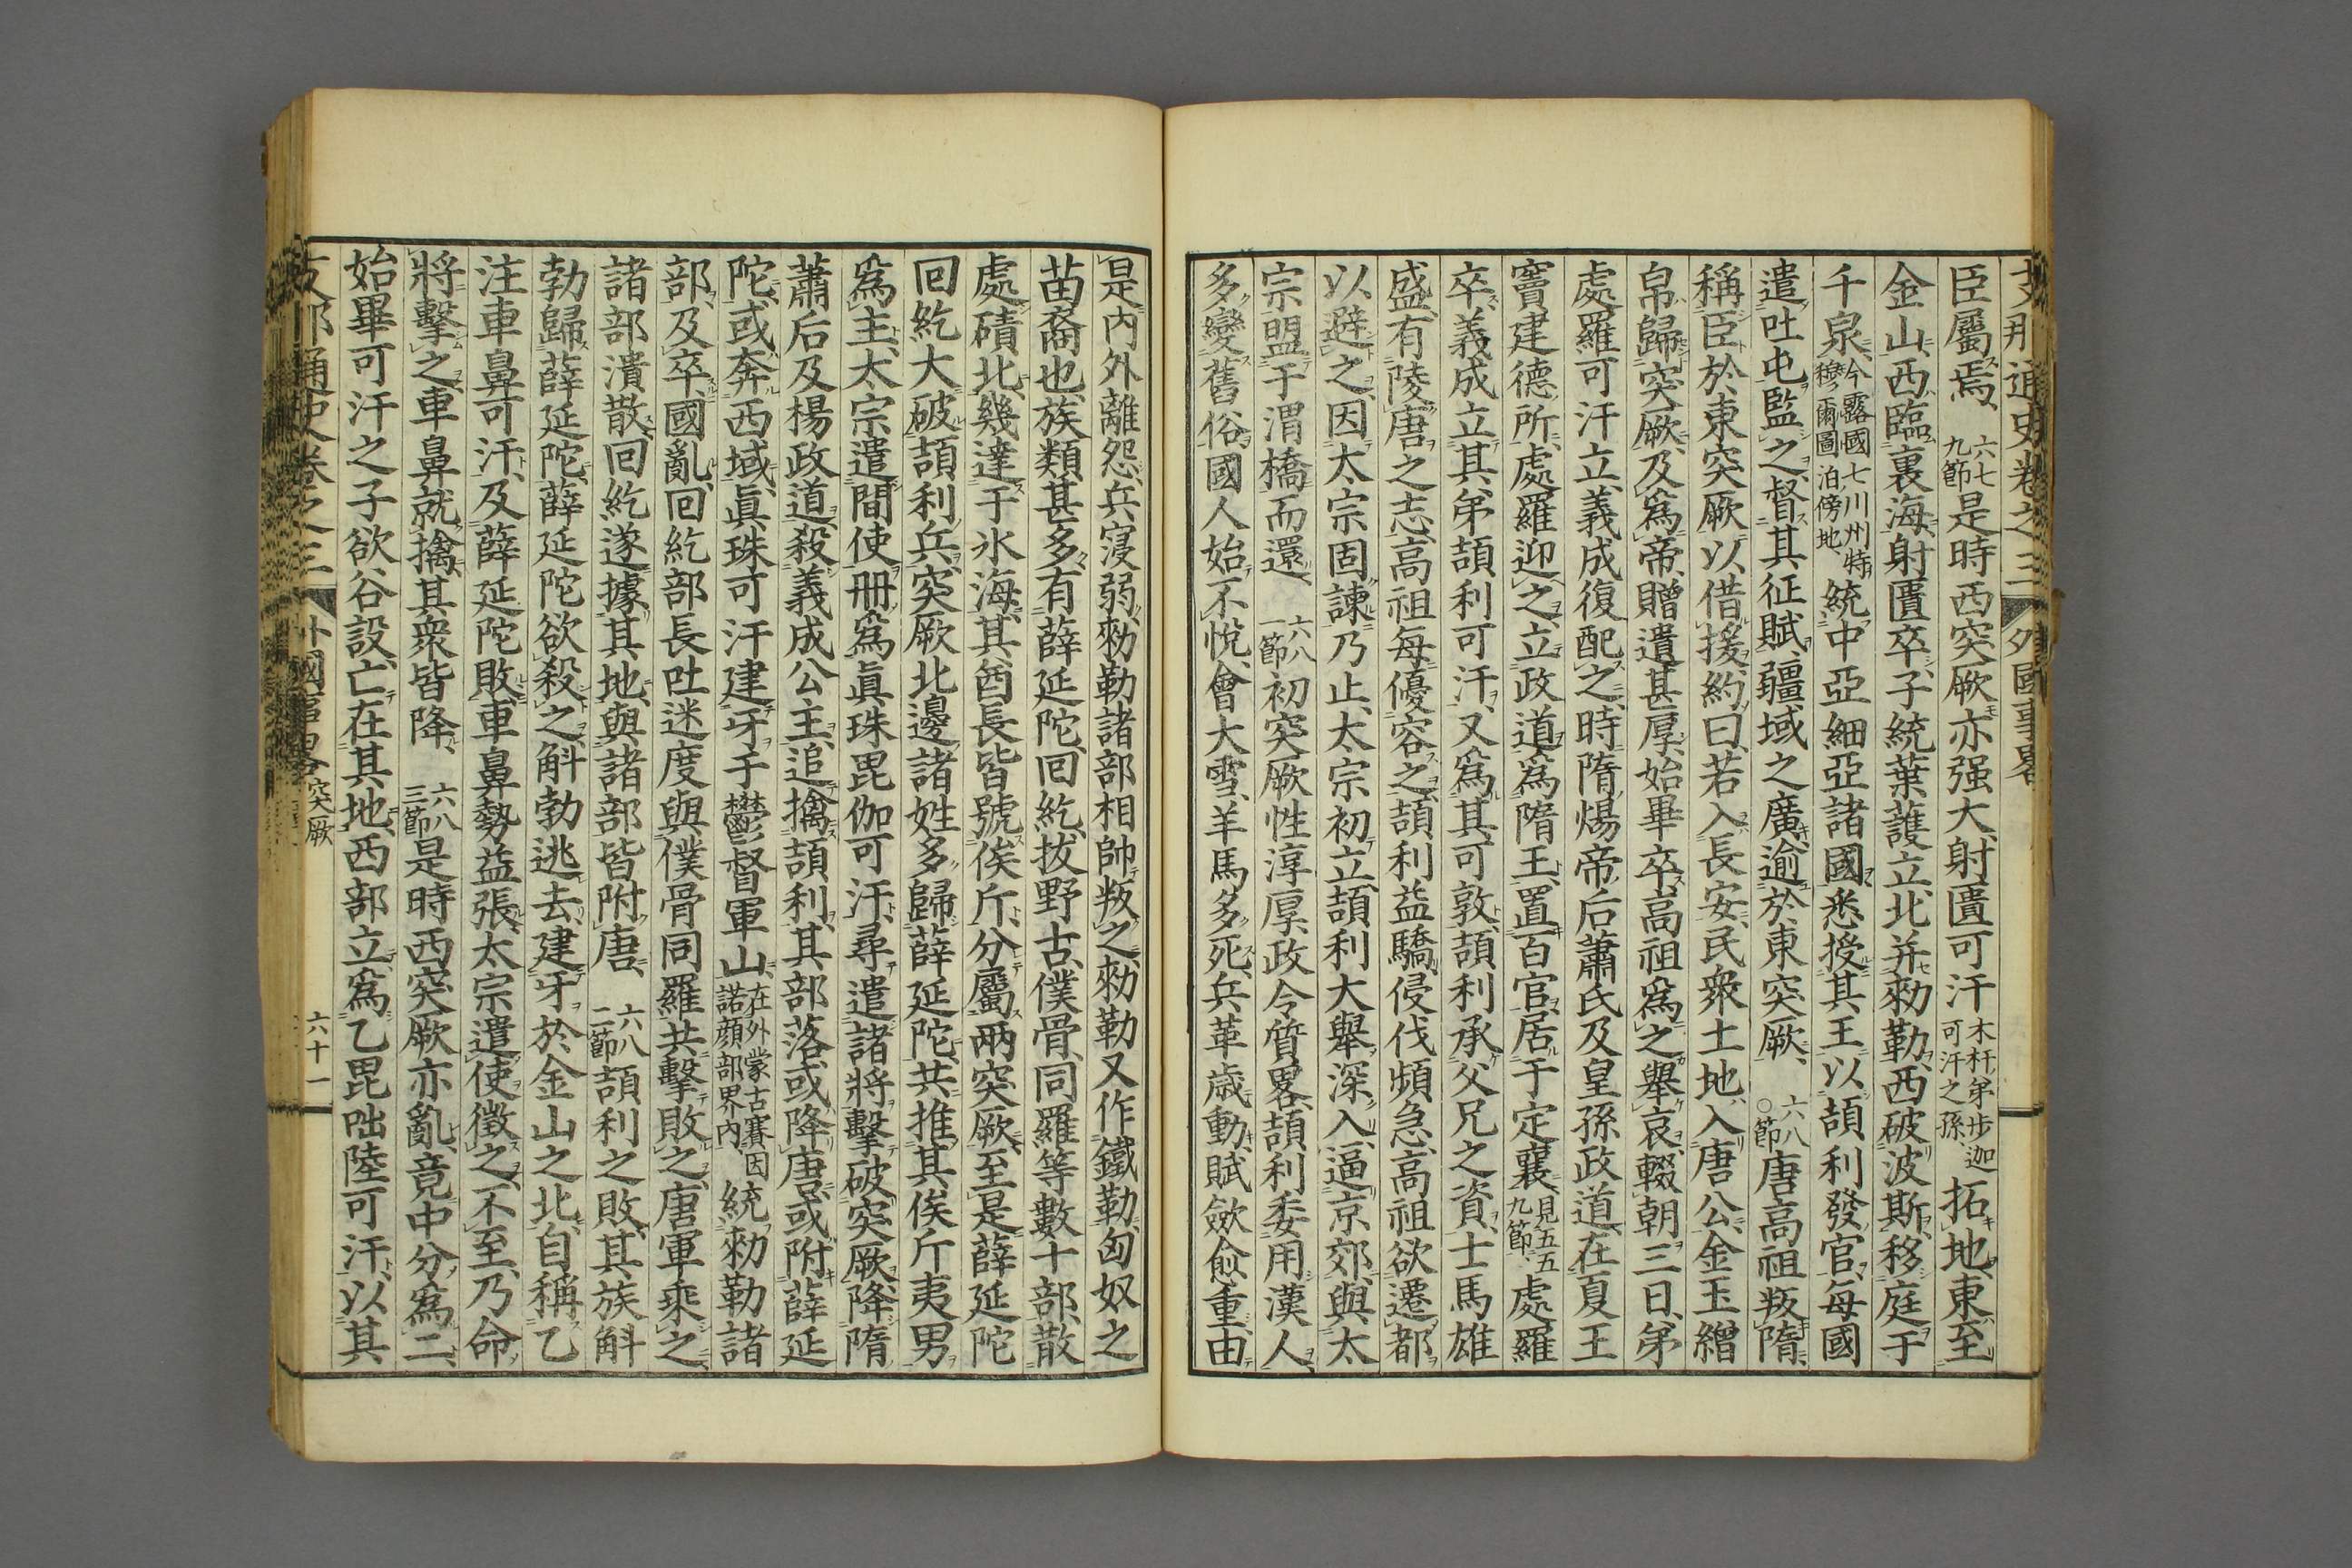 支那通史卷之三 外國事畧
臣屬焉、六七九節是時西突厥亦强大、射匱可汗木杆弟步迦可汗之孫、拓地、東至
金山、西臨裏海、射匱卒、子統葉護立、北并勑勒、西破波斯、移庭于
千泉、今露國七川州特穆爾圖泊傍地、統中亞細亞諸國、悉授其王以頡利發官、每國
遣吐屯監之、督其征賦、疆域之廣、逾於東突厥、六八〇節唐高祖叛隋、
稱臣於東突厥、以借援、約曰、若入長安、民衆土地、入唐公、金玉繒
帛歸突厥、及爲帝、贈遺甚厚、始畢卒、高祖爲之舉哀、輟朝三日、弟
處羅可汗立、義成復配之、時隋煬帝后蕭氏及皇孫政道、在夏王
竇建德所、處羅迎之、立政道爲隋王、置百官、居于定襄、見五五九節、處羅
卒、義成立其弟頡利可汗、又爲其可敦、頡利承父兄之資、士馬雄
盛、有陵唐之志、高祖每優容之、頡利益驕、侵伐頻急、高祖欲遷都
以避之、因太宗固諫乃止、太宗初立、頡利大舉深入、逼京郊、與太
宗盟于渭橋而還、六八一節初突厥性淳厚、政令質畧、頡利委用漢人、
多變舊俗、國人始不悅、會大雪、羊馬多死、兵革歲動、賦斂愈重、由
是內外離怨、兵寖弱、勑勒諸部相帥叛之、勑勒又作鐵勒、匈奴之
苗裔也、族類甚多、有薛延陀、回紇、拔野古、僕骨、同羅等數十部、散
處磧北、幾達于氷海、其酋長皆號俟斤、分屬兩突厥、至是薛延陀
回紇大破頡利兵、突厥北邊諸姓多歸薛延陀、共推其俟斤夷男
爲主、太宗遣間使、册爲眞珠毘伽可汗、尋遣諸將擊破突厥、降隋
蕭后及楊政道、殺義成公主、追擒頡利、其部落或降唐、或附薛延
陀、或奔西域、眞珠可汗建牙于鬱督軍山、在外蒙古賽因諾顏部界內、統勑勒諸
部、及卒、國亂、回紇部長吐迷度與僕骨同羅共擊敗之、唐軍乘之、
諸部潰散、回紇遂據其地、與諸部皆附唐、六八二節頡利之敗、其族斛
勃歸薛延陀、薛延陀欲殺之、斛勃逃去、建牙於金山之北、自稱乙
注車鼻可汗、及薛延陀敗、車鼻勢益張、太宗遣使徵之、不至、乃命
將擊之、車鼻就擒、其衆皆降、六八三節是時西突厥亦亂、竟中分爲二、
始畢可汗之子欲谷設、亡在其地、西部立爲乙毘咄陸可汗、以其
支那通史卷之三 外國事畧 突厥 六十一